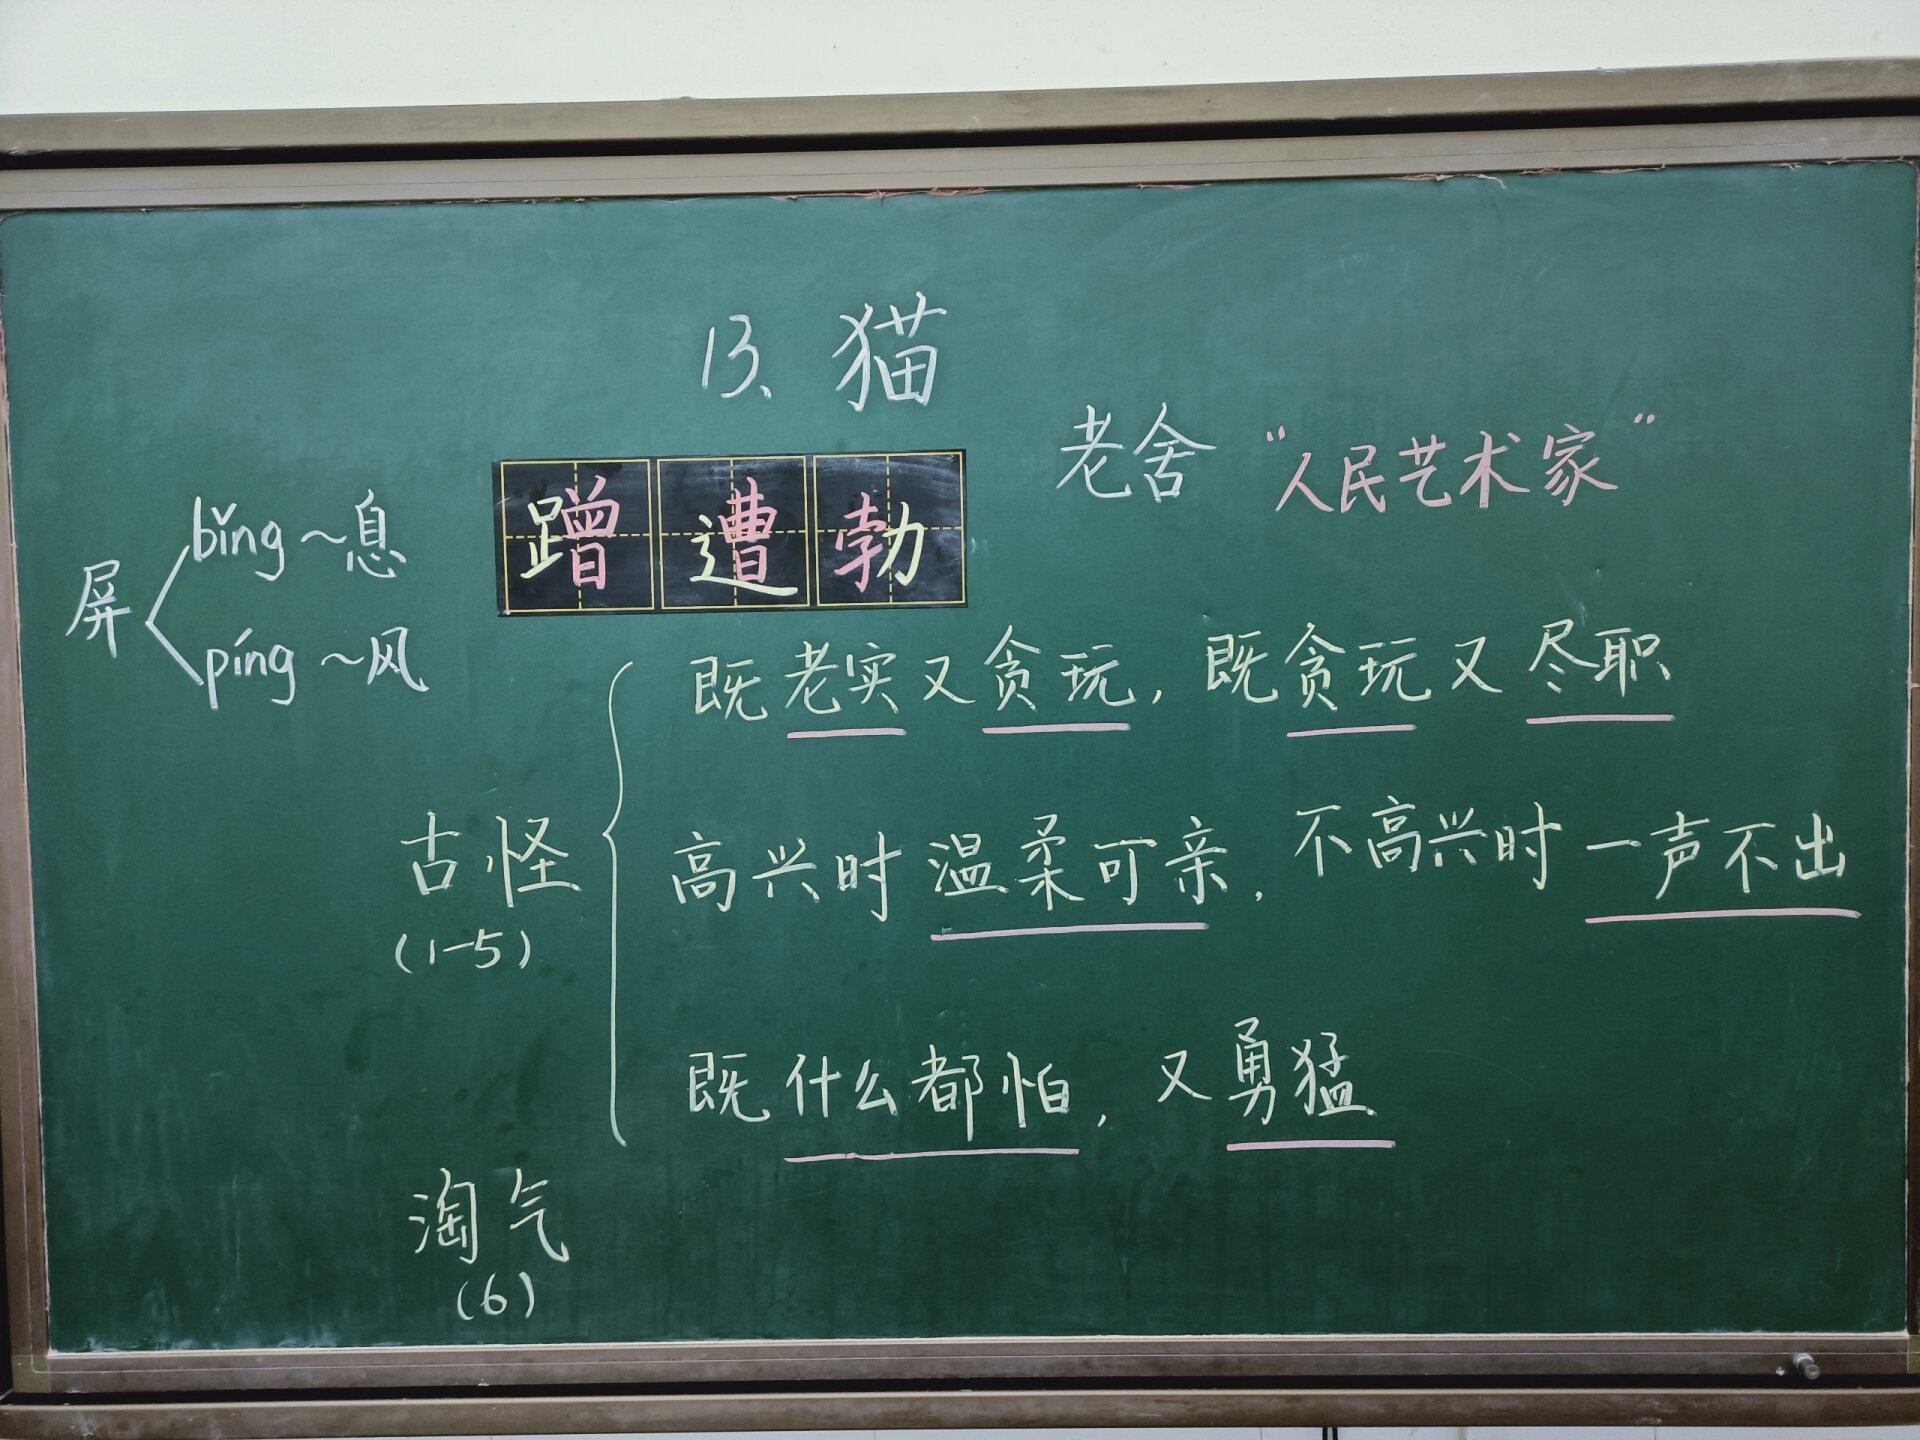 13、猫
老舍 “人民艺术家”
蹭遭勃
屏
bǐng ~息
píng ~风
古怪
(1-5)
既老实又贪玩，既贪玩又尽职
高兴时温柔可亲，不高兴时一声不出
既什么都怕，又勇猛
淘气
(6)